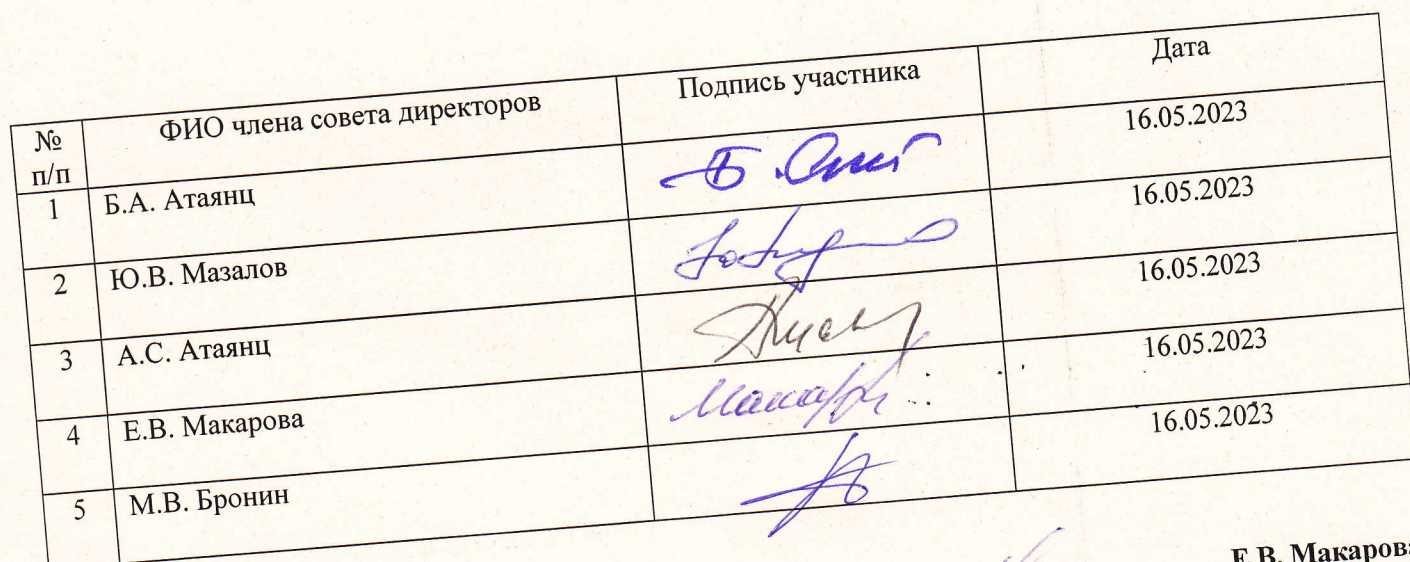 № п/п ФИО члена совета директоров Подпись участника Дата
1 Б.А. Атаянц 16.05.2023
2 Ю.В. Мазалов 16.05.2023
3 А.С. Атаянц 16.05.2023
4 Е.В. Макарова 16.05.2023
5 М.В. Бронин 16.05.2023
Е.В. Макарова